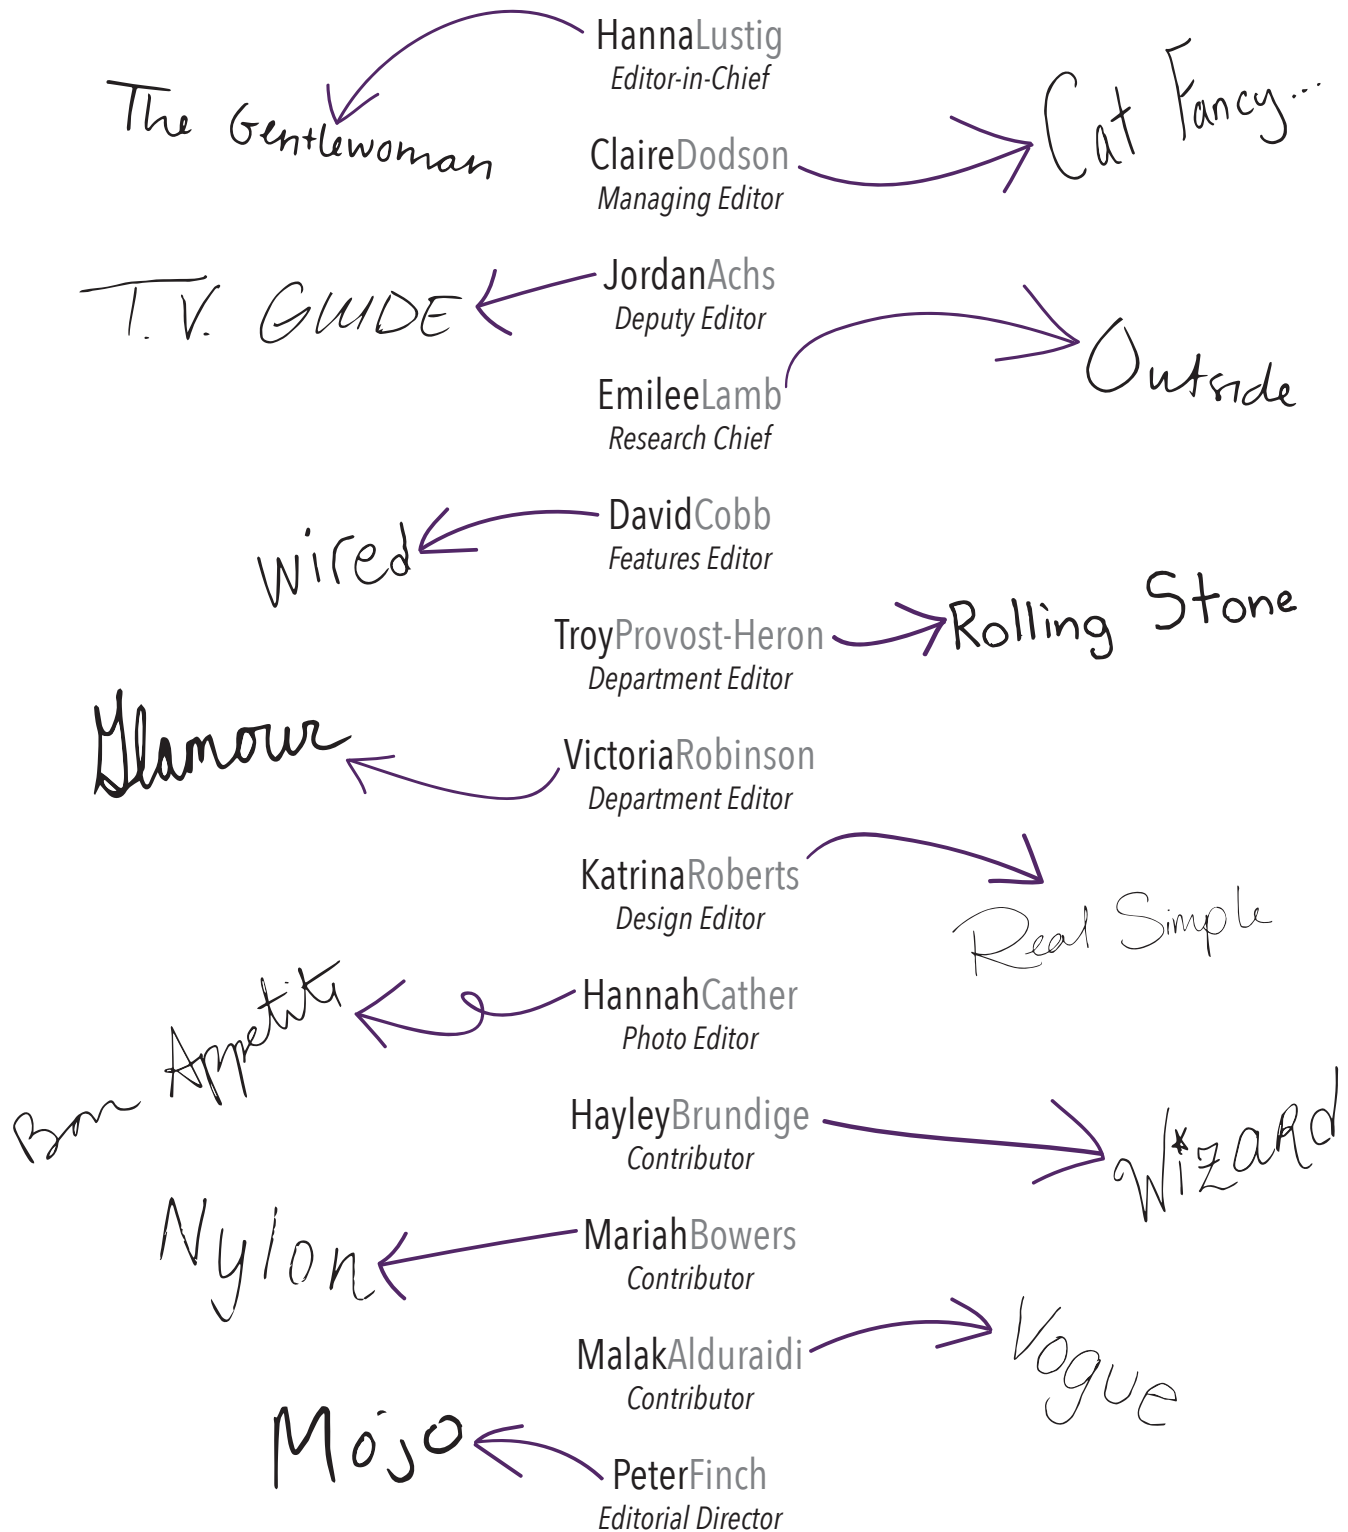 HannaLustig
Editor-in-Chief
The Gentlewoman
Cat Fancy...
ClaireDodson
Managing Editor
JordanAchs
Deputy Editor
T.V. GUIDE
Outside
EmileeLamb
Research Chief
DavidCobb
Features Editor
wired
Rolling Stone
TroyProvost-Heron
Department Editor
Glamour
VictoriaRobinson
Department Editor
KatrinaRoberts
Design Editor
Real Simple
HannahCather
Photo Editor
Bon Appetit
HayleyBrundige
Contributor
WizARd
Nylon
MariahBowers
Contributor
Vogue
MalakAlduraidi
Contributor
Mojo
PeterFinch
Editorial Director